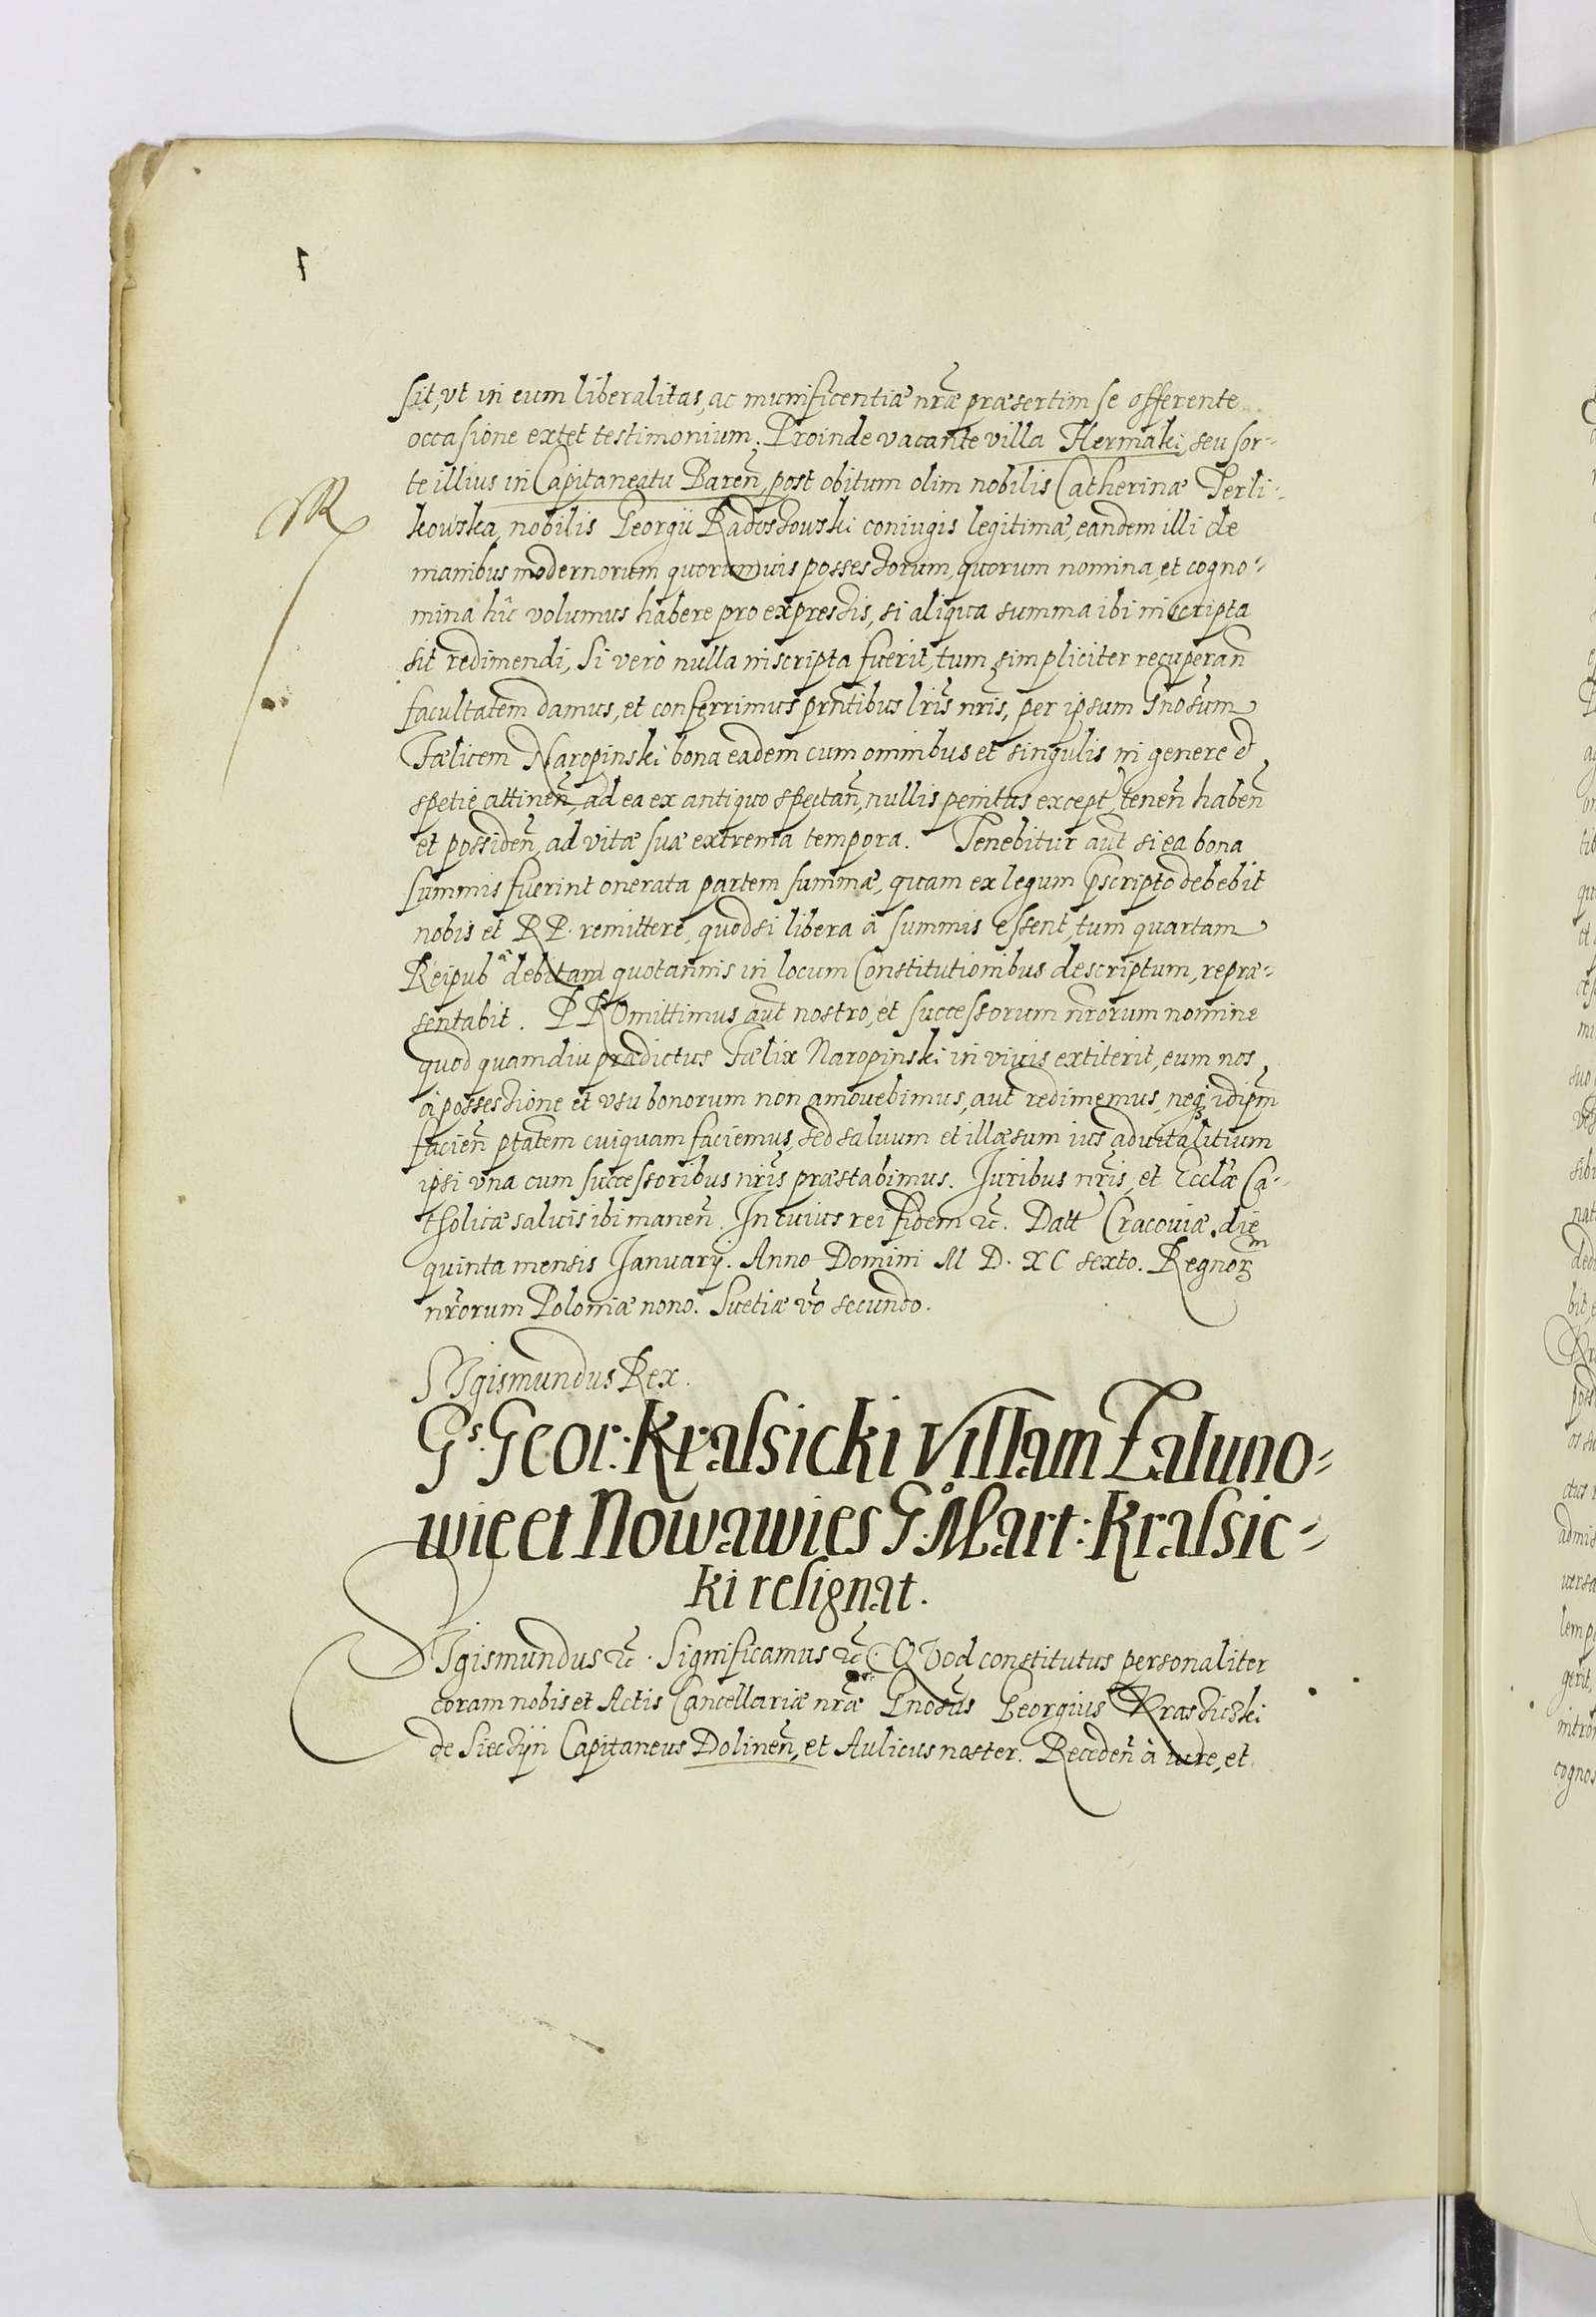 1
sit, vt in eum liberalitas, ac munificentiæ nr̃æ præsertim se offerente
occasione extet testimonium. Proinde vacante villa Hermaki, seu sor-
te illius in Capitaneatu Bareñ, post obitum olim nobilis Catherinæ Terli-
kowska, nobilis Georgii Radoszowski coniugis legitimæ, eandem illi de
manibus modernorum quorumuis possessorum, quorum nomina, et cogno-
mina hîc volumus habere pro expressis, si aliqua summa ibi inscripta
sit redimendi, Si verò nulla inscripta fuerit, tum simpliciter recuperañ
facultatem damus, et conferrimus prñtibus lr̃is nr̃is, per ipsum Gnosum
Fælicem Naropinski bona eadem cum omnibus et singulis in genere et
spetie attineñ, ad ea ex antiquo spectañ, nullis penitus except, teneñ habeñ
et possideñ, ad vitæ suæ extrema tempora. Tenebitur aũt si ea bona
summis fuerint onerata partem summæ, quam ex legum p̃scripto debebit
nobis et RP. remittere, quod si libera à summis essent, tum quartam
Reipubᵃᵉ debitam quotannis in locum Constitutionibus descriptum, repræ-
sentabit. PROmittimus aũt nostro, et successorum nr̃orum nomine
quod quamdiu prædictus Fælix Naropinski in viuis extiterit, eum nos
à possessione et vsu bonorum non amouebimus, aut redimemus, neq₃ id ip̃m
facieñ ptãtem cuiquam faciemus, sed saluum et illæsum ius aduitalitium
ipsi vna cum successoribus nr̃is præstabimus. Iuribus nr̃is, et Eccl̃æ Ca-
tholicæ saluis ibi maneñ. In cuius rei fidem etc̃. Datt Cracouiæ die
quinta mensis Ianuarij. Anno Domini M D. XC sexto. Regnorᵐ
nr̃orum Poloniæ nono. Suetiæ vo᷉ secundo.
SIgismundus Rex.
Gˢ. Geor: Krassicki villam Załuno-
wie et Nowawies G°: Mart: Krassic-
ki resignat.
SIgismundus etc̃. Significamus etc̃. QVod constitutus personaliter
coram nobis et Actis Cancellariæ nr̃æ Gnosũs Georgius Krasziczki
de Sieczyn Capitaneus Dolineñ, et Aulicus noster. Recedeñ à iure, et